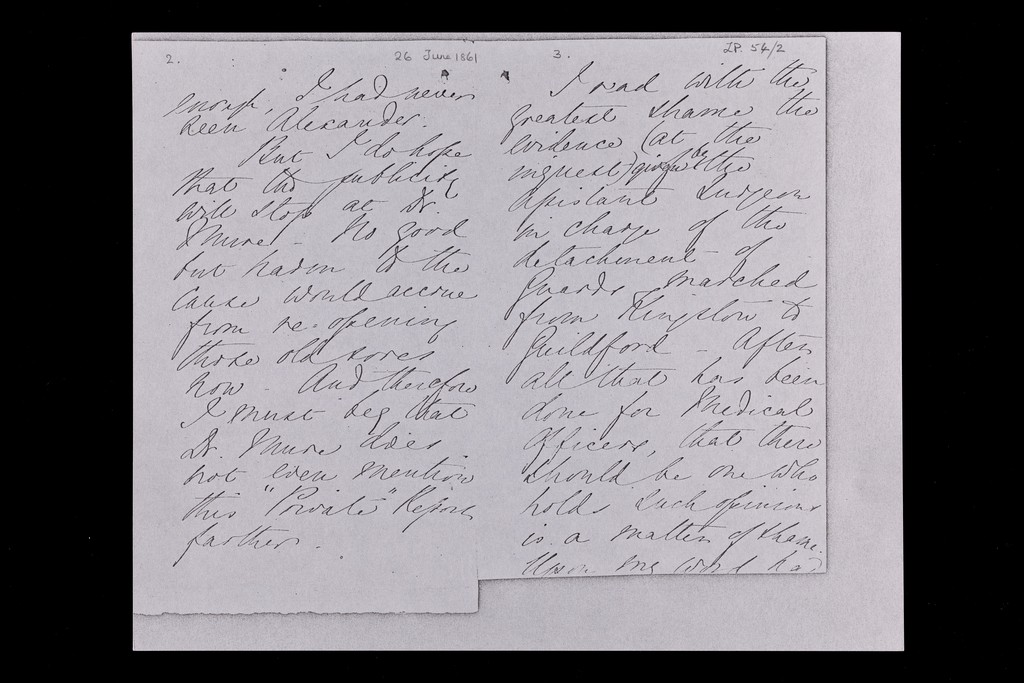 2.
26 June 1861
enough, I had never
seen Alexander.
But I do hope
that the publicity
will stop at Dr.
Mure - No good
but harm to the
cause would accrue
from re-opening
those old sores
now - And therefore
I must beg that
Dr. Mure does
not even mention
this "Private" Report
farther.
3.
LP. 54/2
I read with the
greatest shame the
evidence (at the
inquest) given by the
Assistant Surgeon
in charge of the
detachment of
Guards marched
from Kingston to
Guildford - After
all that has been
done for Medical
Officers, that there
should be one who
holds such opinions
is a matter of shame.
Upon my word